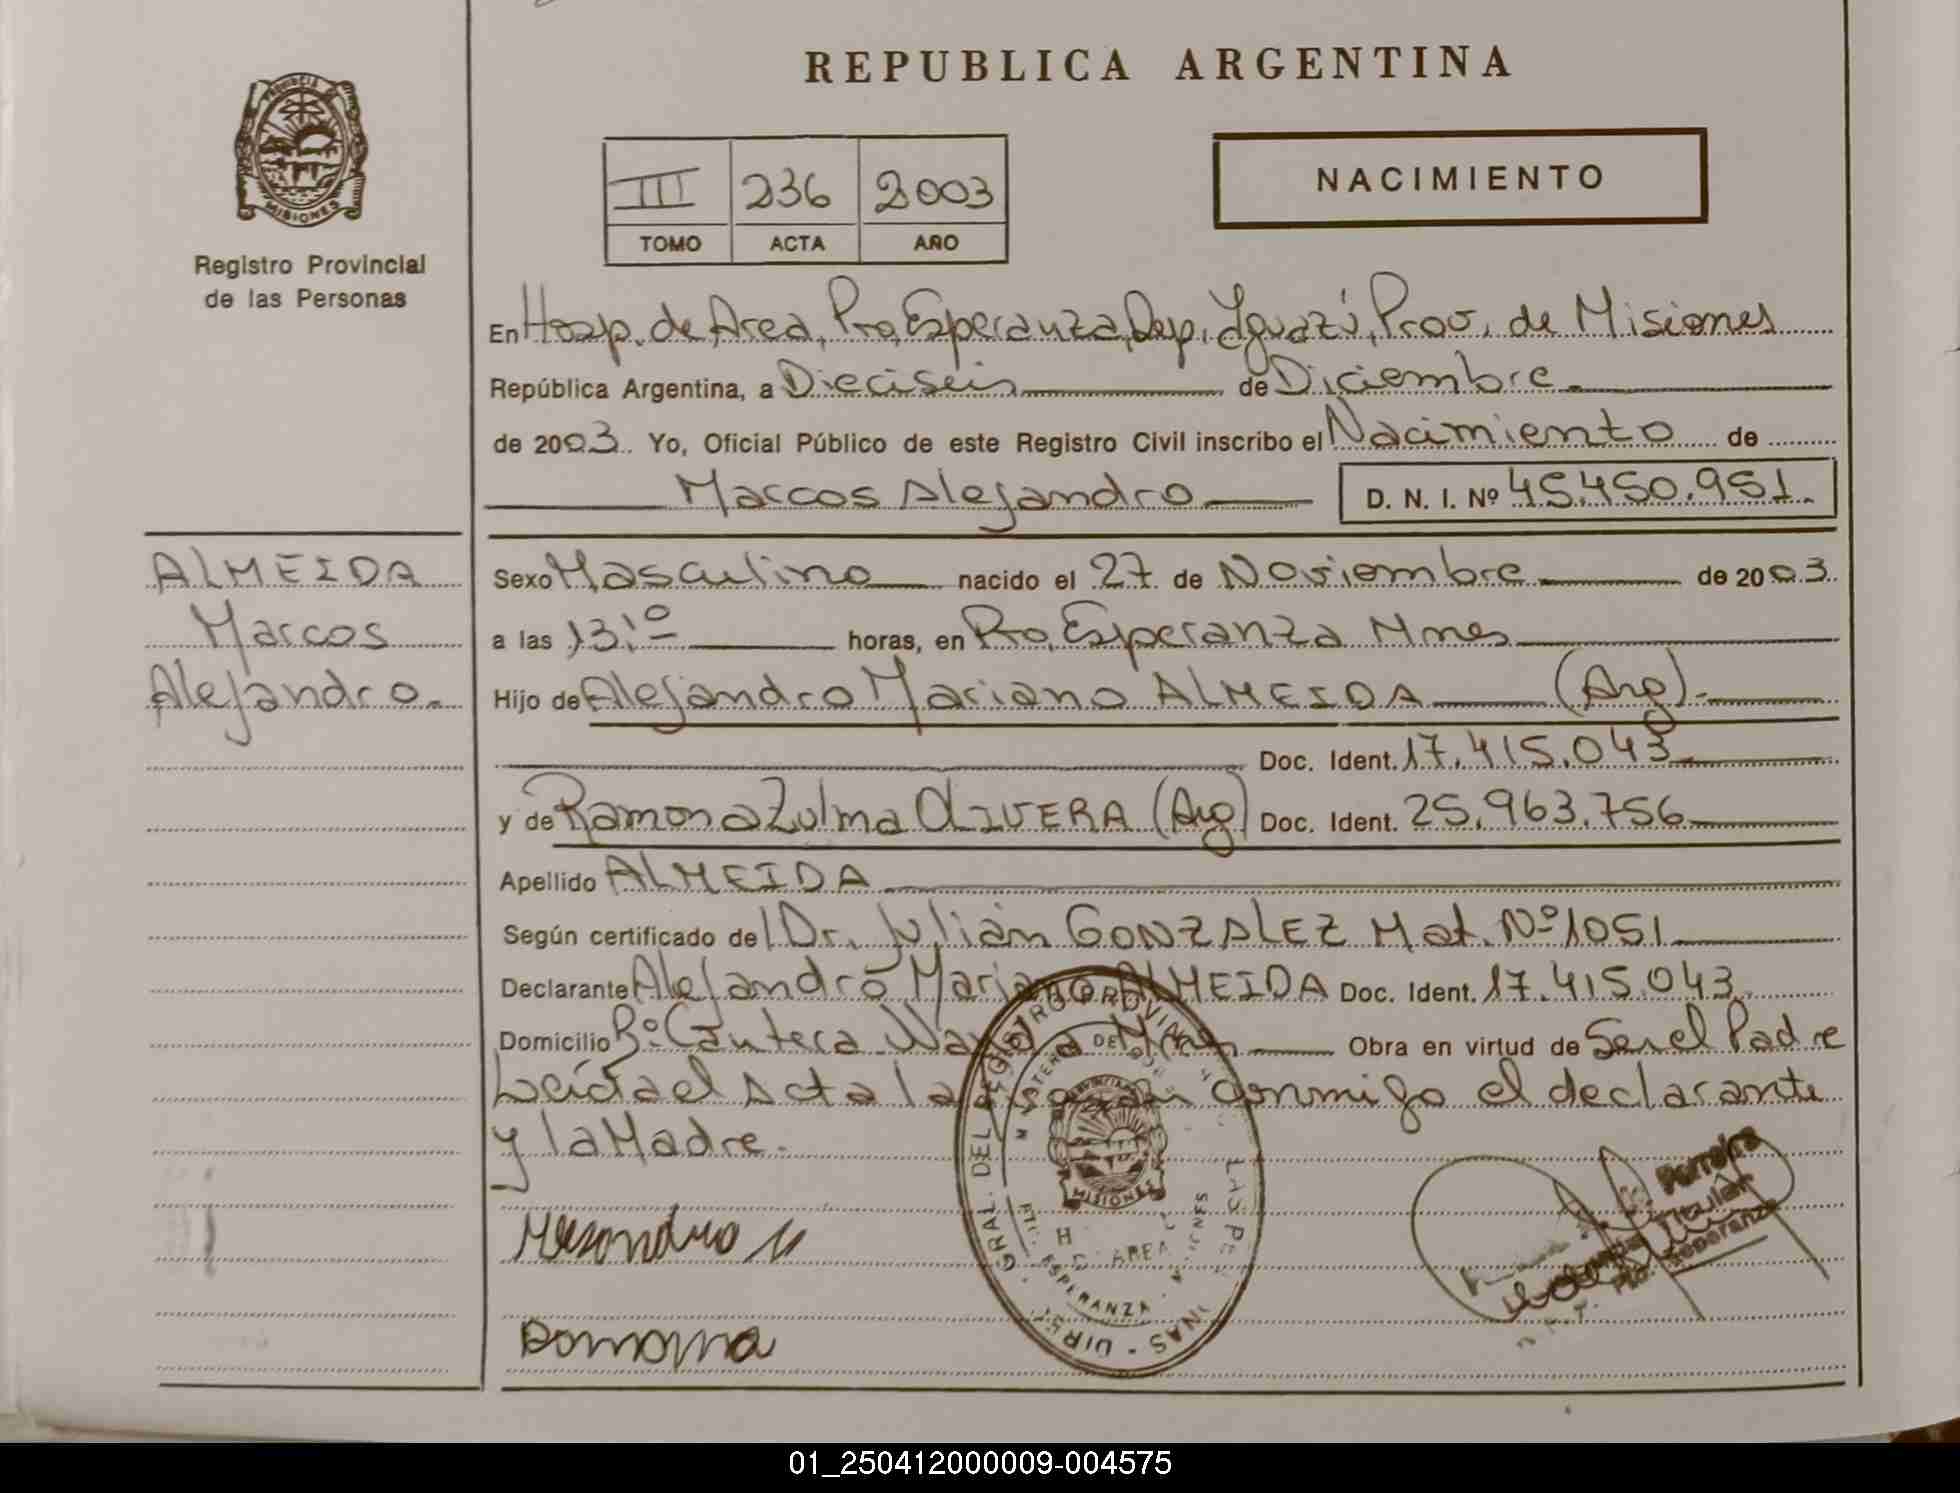 REPUBLICA ARGENTINA
PROVINCIA
MISIONES
Registro Provincial
de las Personas
III 236 2003
TOMO ACTA AÑO
NACIMIENTO
En Hosp. de Area, Pto, Esperanza, Dep. Iguazú, Prov. de Misiones
República Argentina, a Dieciseis de Diciembre.
de 2003. Yo, Oficial Público de este Registro Civil inscribo el Nacimiento de
Marcos Alejandro D. N. I. Nº 45.450.951.
ALMEIDA
Marcos
Alejandro.
Sexo Masculino nacido el 27 de Noviembre de 2003.
a las 13:º horas, en Pto, Esperanza Mnes
Hijo de Alejandro Mariano ALMEIDA (Arg).
Doc. Ident. 17.415.043
y de Ramona Zulma OLIVERA (Arg) Doc. Ident. 25.963.756
Apellido ALMEIDA
Según certificado del Dr. Julián GONZALEZ Mat. Nº 1051
Declarante Alejandro Mariano ALMEIDA Doc. Ident. 17.415.043.
Domicilio Bº Cantera Mnes Obra en virtud de Ser el Padre
Leída el Acta la conmigo el declarante
y la Madre.
GRAL. DEL REGISTRO PROVIN LAS PE
MISIONES
AREA
ESPERANZA
Ramona
Titular
Pto. Esperanza
01_250412000009-004575